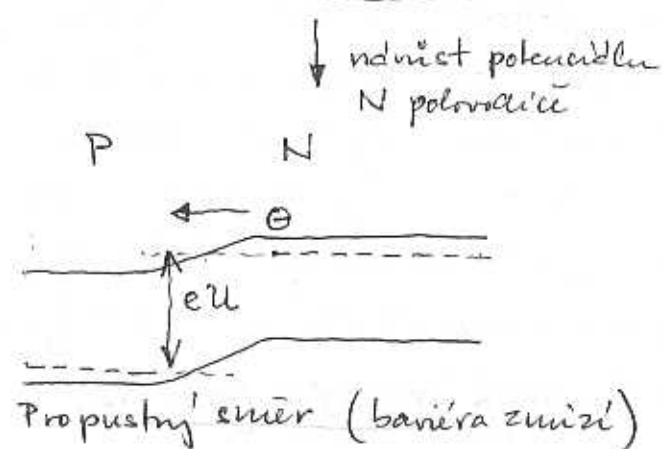 nárůst potenciálu
N polovodiče
P N
⊖
eU
Propustný směr (bariéra zmizí)